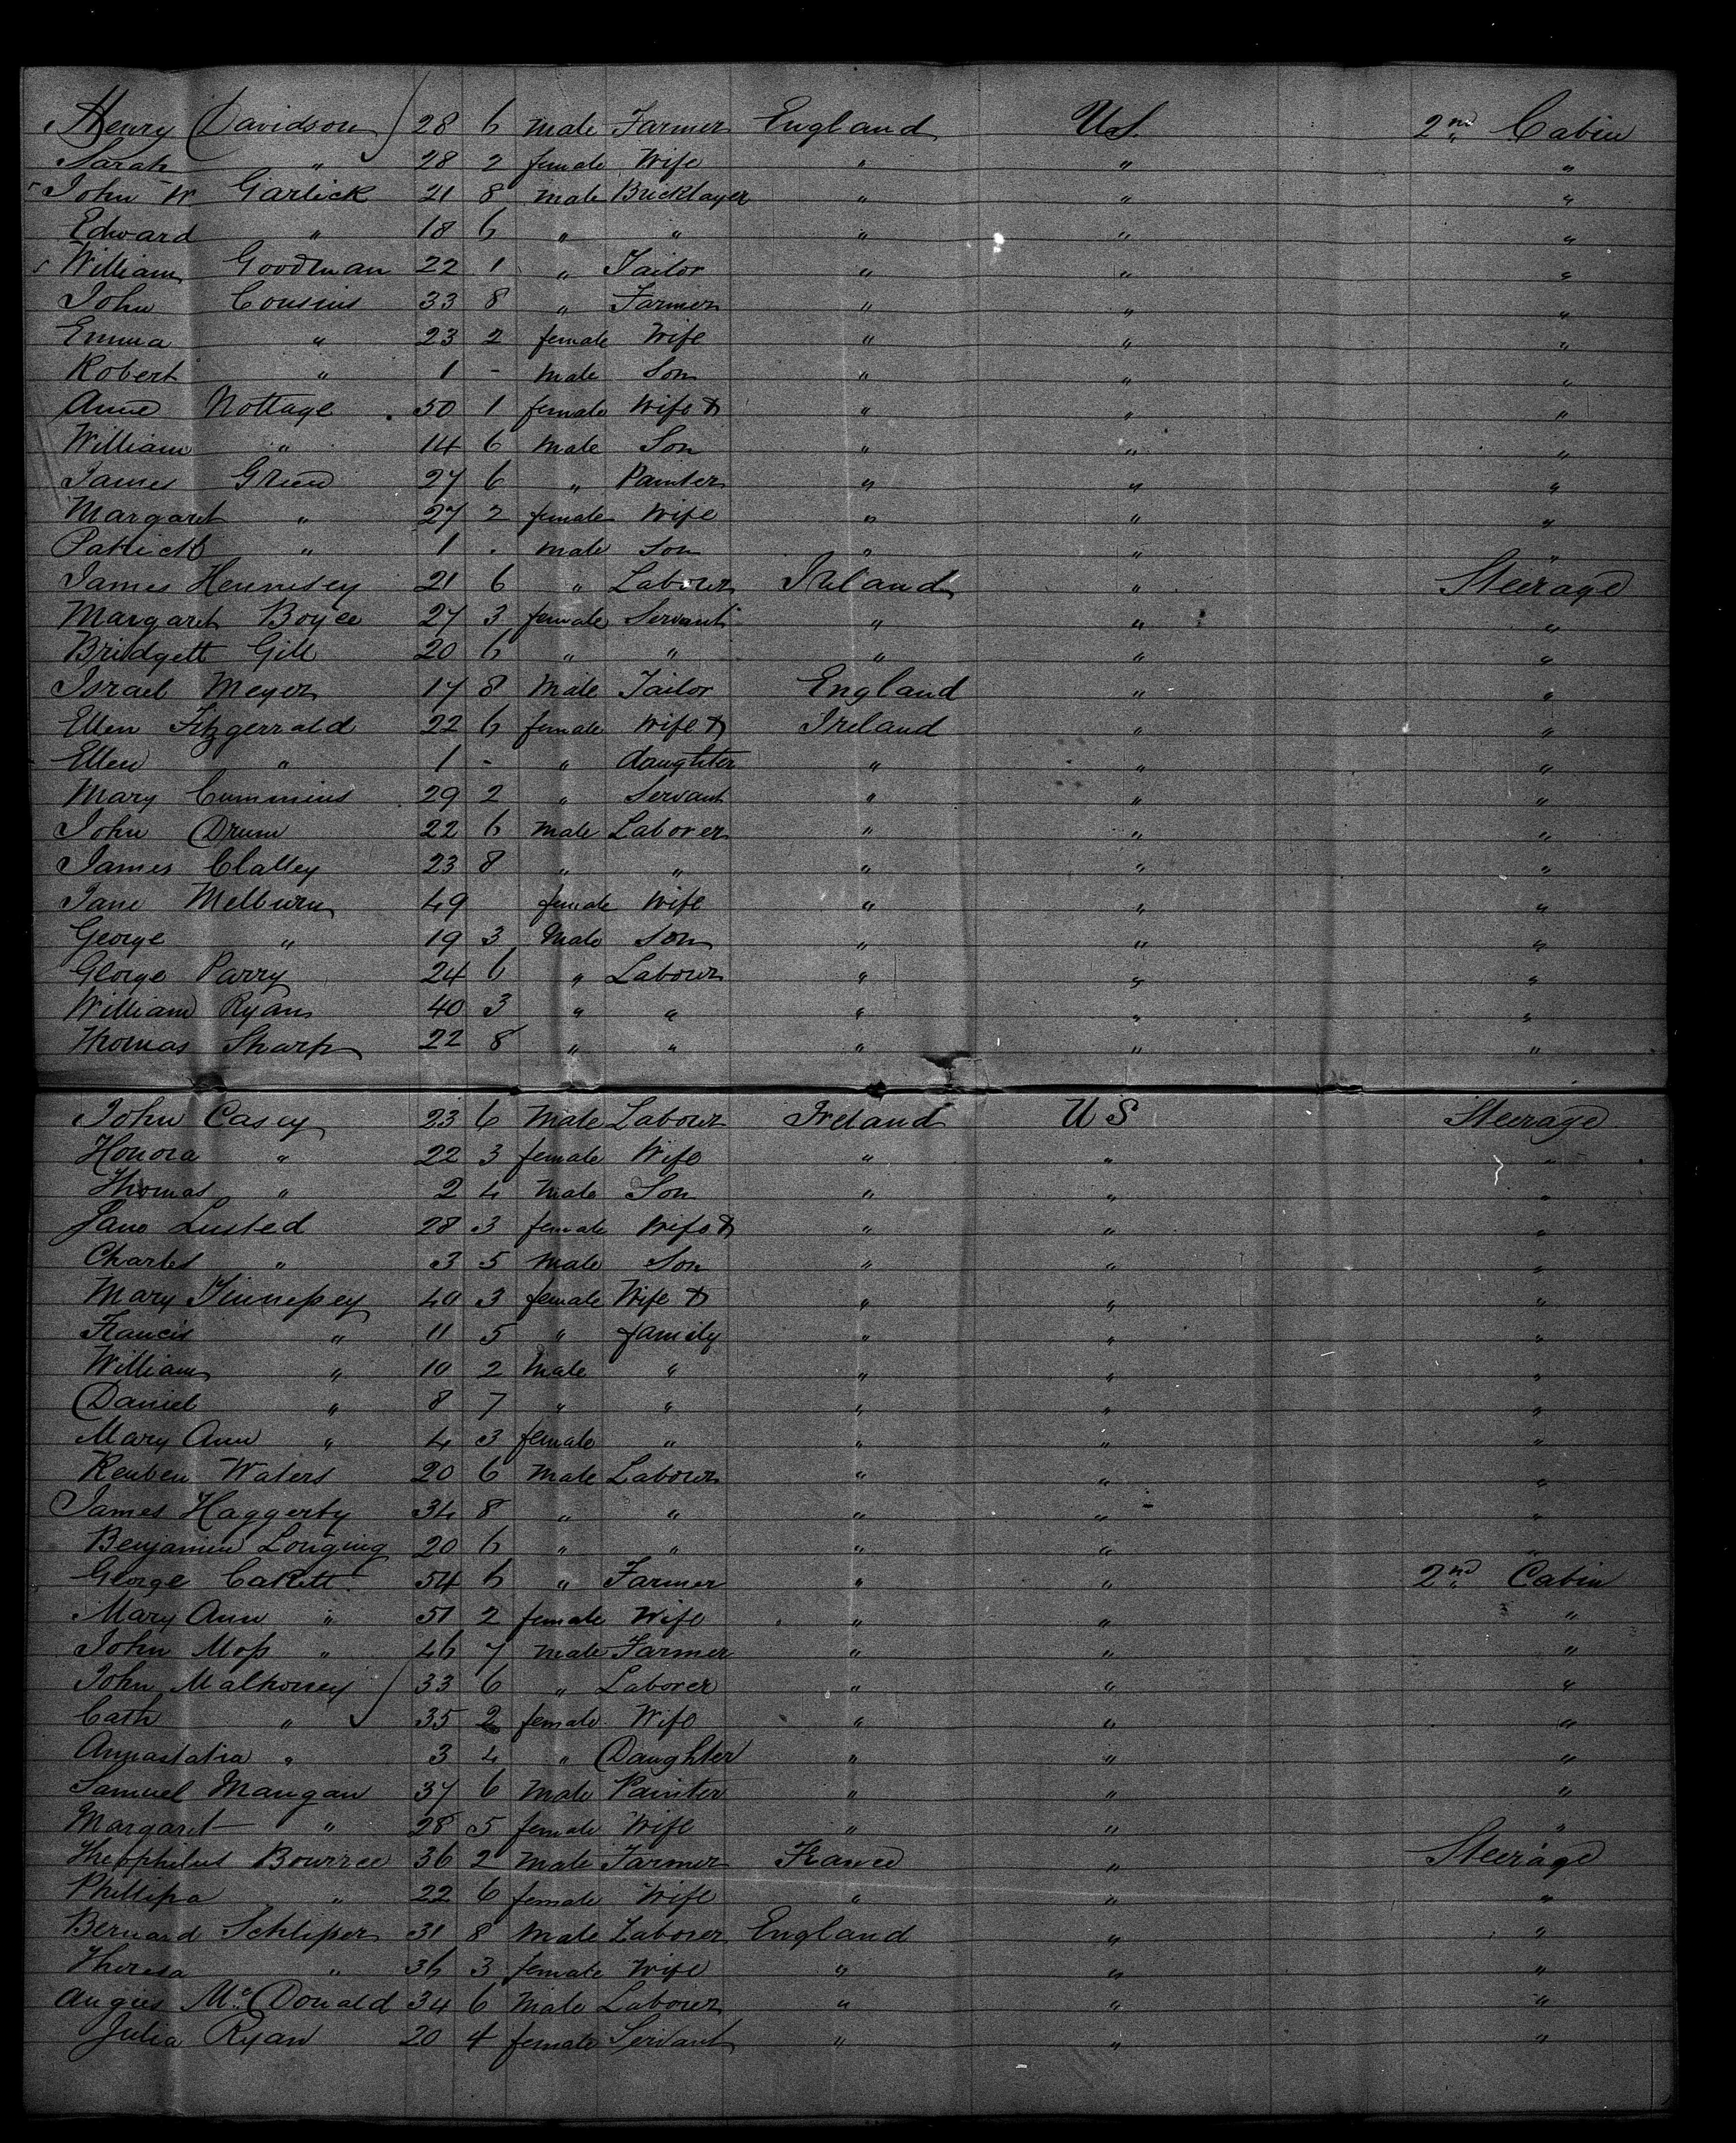 Henry Davidson 28 6 male Farmer England US 2nd Cabin
Sarah " 28 2 female Wife " " "
John W Garlick 21 8 male Bricklayer " " "
Edward " 18 6 " " " " "
William Goodman 22 1 " Tailor " " "
John Cousins 33 8 " Farmer " " "
Emma " 23 2 female Wife " " "
Robert " 1 - male Son " " "
Anne Nottage 50 1 female Wife & " " "
William " 14 6 male Son " " "
James Green 27 6 " Painter " " "
Margaret " 27 2 female Wife " " "
Patrick " 1 - male Son " " "
James Hennesey 21 6 " Labour Ireland " Steerage
Margaret Boyce 27 3 female Servant " " "
Bridgett Gill 20 6 " " " " "
Israel Meyer 17 8 Male Tailor England " "
Ellen Fitzgerrald 22 6 female Wife & Ireland " "
Ellen " 1 - " daughter " " "
Mary Cummins 29 2 " Servant " " "
John Drum 22 6 male Laborer " " "
James Clalley 23 8 " " " " "
Jane Melburn 49 female Wife " " "
George " 19 3 Male Son " " "
George Parry 24 6 " Labour " " "
William Ryan 40 3 " " " " "
Thomas Sharp 22 8 " " " " "
John Casey 23 6 Male Labour Ireland US Steerage
Honora " 22 3 female Wife " " "
Thomas " 2 4 Male Son " " "
Jane Lusted 28 3 female Wife & " " "
Charles " 3 5 Male Son " " "
Mary 40 3 female Wife & " " "
Francis " 11 5 " family " " "
William " 10 2 Male " " " "
Daniel " 8 7 " " " " "
Mary Ann " 4 3 female " " " "
Reuben Waters 20 6 Male Labour " " "
James Haggerty 34 8 " " " " "
Benjamin Longing 20 6 " " " " "
George Cakett 54 6 " Farmer " " 2nd Cabin
Mary Ann " 51 2 female Wife " " "
John Moss " 46 7 male Farmer " " "
John Malhoney 33 6 " Laborer " " "
Cath " 35 2 female Wife " " "
Annastatia " 3 4 " Daughter " " "
Samuel Mangan 37 6 Male Painter " " "
Margaret " 28 5 female Wife " " "
Theophilus Bourree 36 2 Male Farmer France " Steerage
Phillipa " 22 6 female Wife " " "
Bernard Schliper 31 8 Male Laborer England " "
Theresa " 36 3 female Wife " " "
Angus Mc Donald 34 6 Male Labour " " "
Julia Ryan 20 4 female Servant " " "